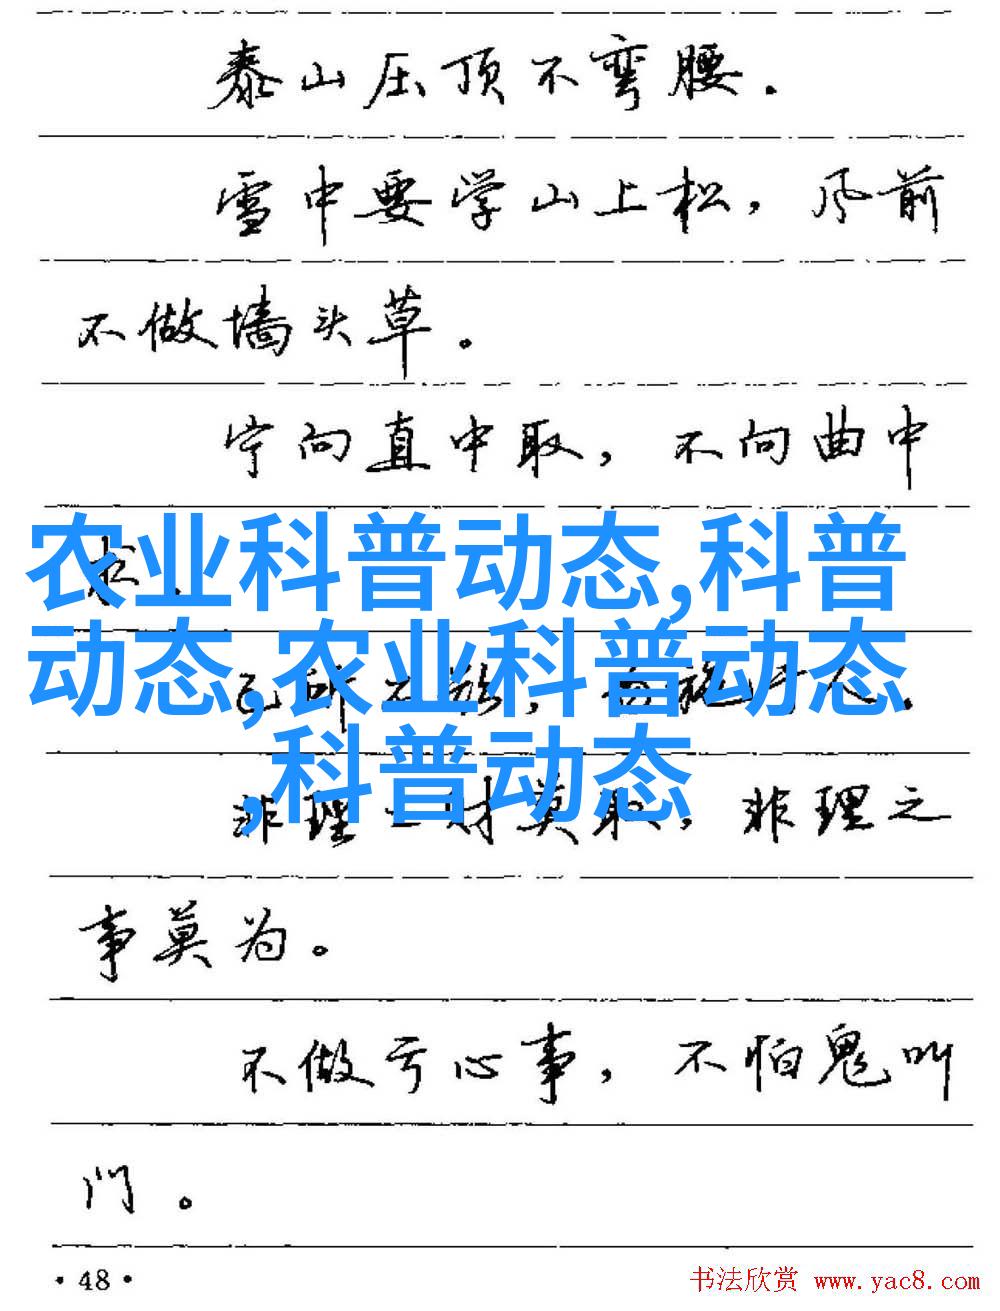 泰山压顶不弯腰.
雪中要学山上松，风前
不做墙头草。
宁向直中取，不向曲中
农业科普动态,科普
动态,农业科普动态
,科普动态
非理之财莫取，非理之
事莫为。
不做亏心事，不怕鬼叫
门。
·48·
书法欣赏 www.yac8.com